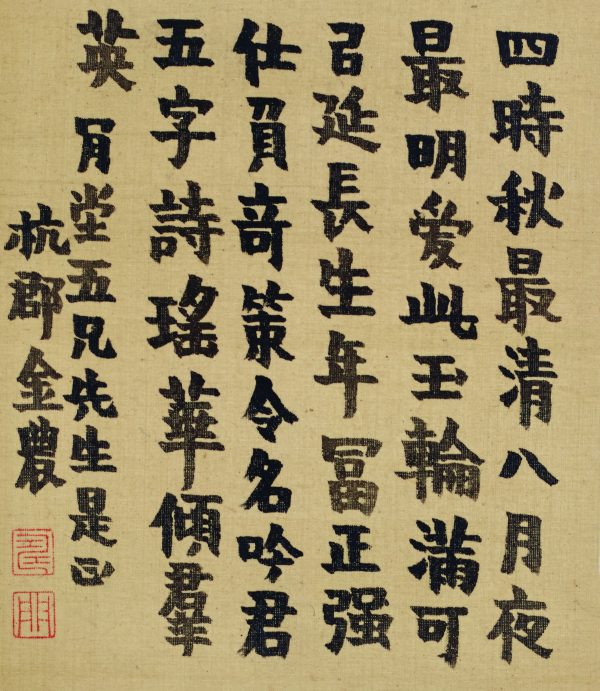 四時秋最清八月夜
最明愛此玉輪滿可
㠯延長生年冨正强
仕負奇策令名吟君
五字詩瑤華傾羣
英 肎堂五兄先生是正
杭郡金農